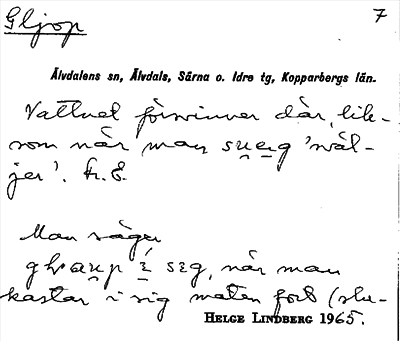 Gljop 7
Älvdalens sn, Älvdals, Särna o. Idre tg, Kopparbergs län.
Vattnet försvinner där, lik-
som när man su̯e̯g 'sväl-
jer'. tr. E.
Man säger
i sig, när man
kastar i sig maten fort (slu-
HELGE LINDBERG 1965.